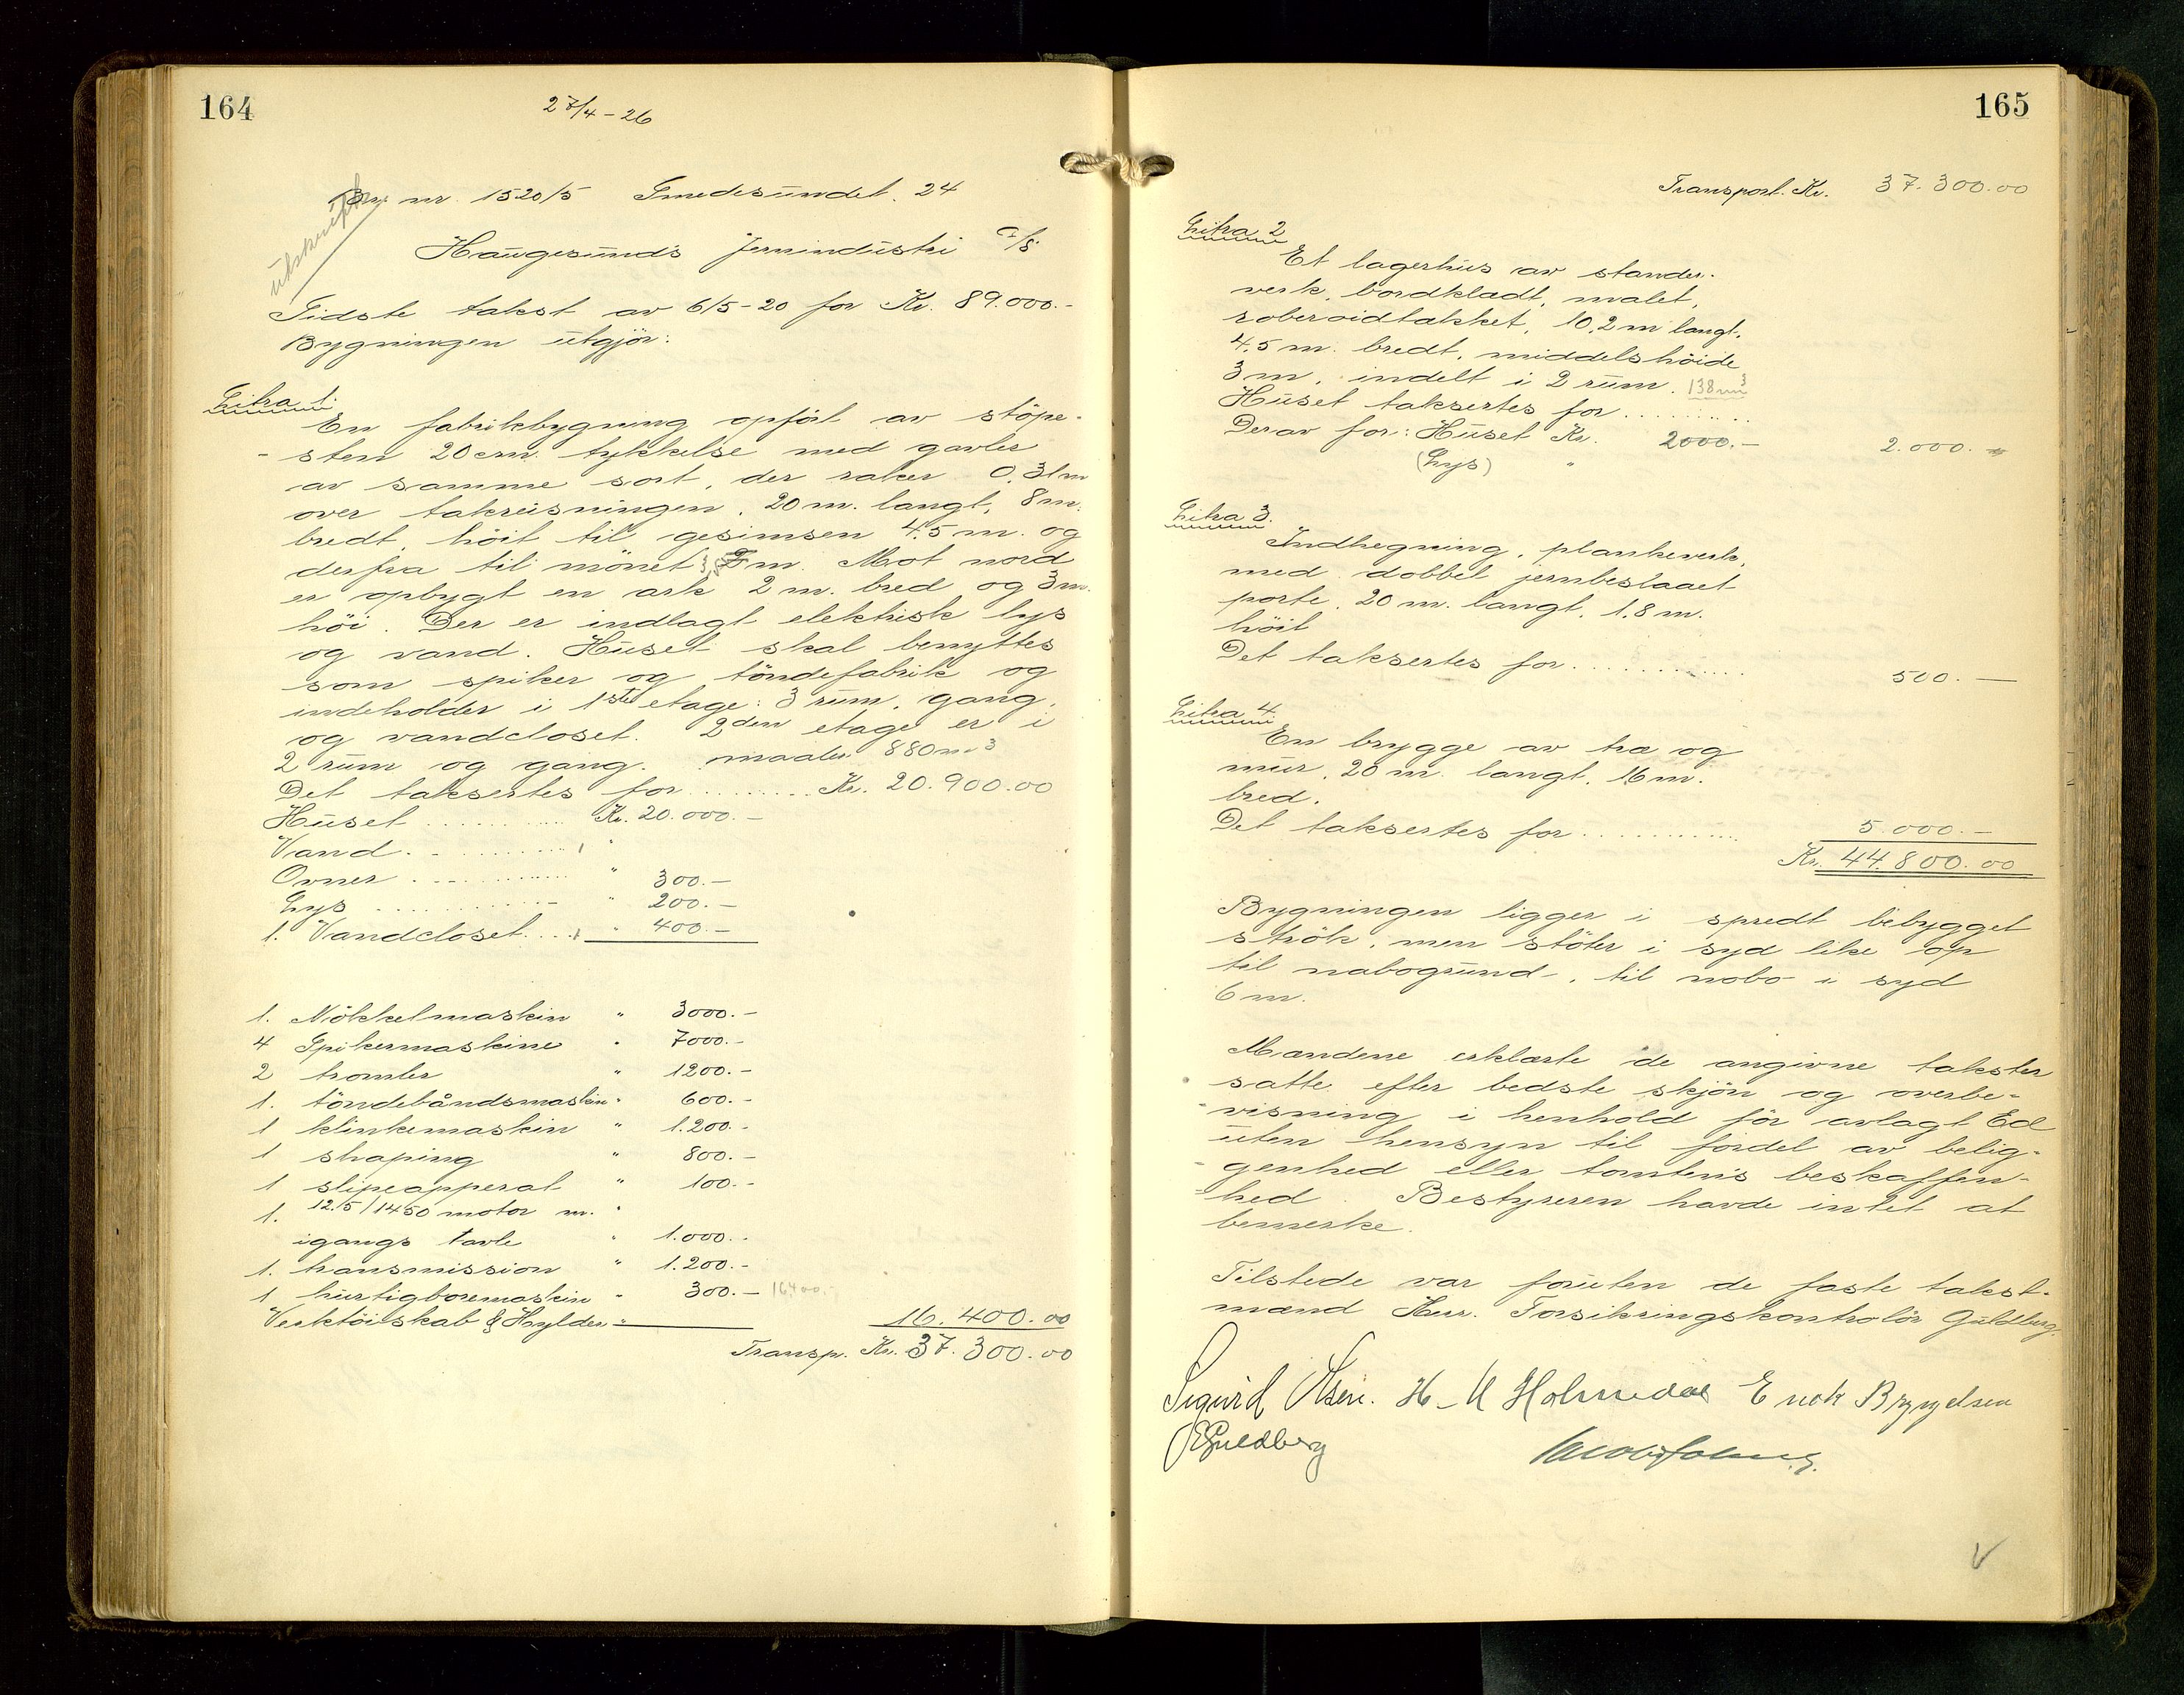 164
27/4-26
utskrift
Br. nr. 1520/5 Smedesundet. 24
Haugesunds Jernindustri A/S
Sidste takst av 6/5-20 for Kr. 89.000.-
Bygningen utgjör:
Litra 1.
En fabrikbygning opfört av stöpe-
sten 20 cm. tykkelse med gavler
av samme sort, der raker 0,31 m
over takreisningen, 20 m. langt, 8 m.
bredt, höit til gesimsen 4,5 m. og
derfra til mönet m. Mot nord
er opbygt en ark 2 m. bred og 3 m.
höi. Der er indlagt elektrisk lys
og vand. Huset skal benyttes
som spiker og töndefabrik og
indeholder i 1ste etage: 3 rum, gang,
og vandcloset. 2den etage er i
2 rum og gang. maaler 880 m3
Det taksertes for ......... Kr. 20.900.00
Huset ............ Kr. 20.000.-
Vand ............ "
Ovner ............ " 300.-
Lys ............ " 200.-
1. Vandcloset.... " 400.-
1. Nökkelmaskin " 3000.-
4 Spikermaskine " 7000.-
2 tromler " 1200.-
1. töndebåndsmaskin " 600.-
1 klinkemaskin " 1.200.-
1 shaping " 800.-
1 slipeapperat " 100.-
1. 12.5/1450 motor m. "
igangs tavle " 1.000.-
1. transmission " 1.200.-
1 hurtigboremaskin " 300.- 16400.-
Verktöiskab & Hylder " 16.400.00
Transp. Kr. 37.300.00
165
Transport. Kr. 37.300.00
Litra 2
Et lagerhus av stander-
verk, bordklædt, malet,
roberoidtækket, 10,2 m langt,
4,5 m. bredt, middelshöide
3 m, indelt i 2 rum. 138 m3
Huset taksertes for .........
Derav for: Huset Kr. 2000.- 2.000.-
(Lys) "
Litra 3.
Indhegning, plankeverk,
med dobbel jernbeslaaet
porte, 20 m. langt, 1,8 m.
höit
Det taksertes for ............ 500.-
Litra 4.
En brygge av træ og
mur, 20 m. langt, 16 m.
bred.
Det taksertes for ............ 5.000.-
Kr. 44.800.00
Bygningen ligger i spredt bebygget
strök, men stöter i syd like op
til nabogrund, til nabo i syd
6 m.
Mændene erklærte de angivne takster
satte efter bedste skjön og overbe-
visning i henhold för avlagt Ed
uten hensyn til fordel av belig-
genhed eller tomtens beskaffen-
hed. Bestyreren havde intet at
bemerke.
Tilstede var foruten de faste takst-
mænd Herr. Forsikringskontrolör Guldberg.
Sigurd Olsen. H-M Holmedal Erick Bryngelsen
Guldberg